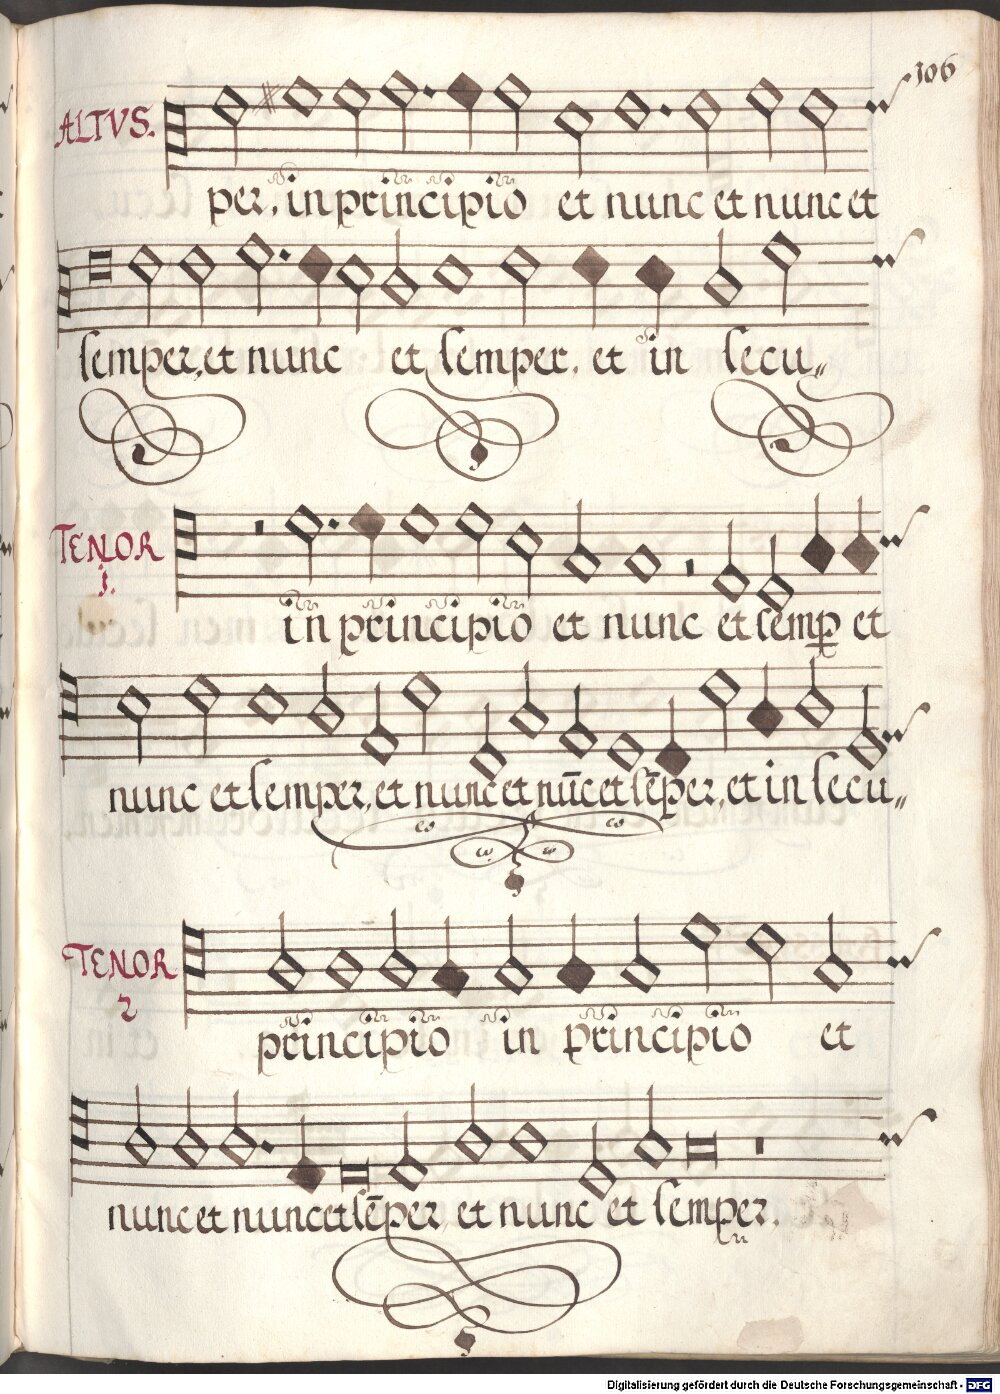 106
ALTVS.
per, in principio et nunc et nunc et
semper, et nunc et semper, et in secu„
TENOR
1.
in principio et nunc et semp̱ et
nunc et semper, et nunc et nūc et sēper, et in secu„
TENOR
2
principio in principio et
nunc et nunc et sēper, et nunc et semper.
Digitalisierung gefördert durch die Deutsche Forschungsgemeinschaft - DFG